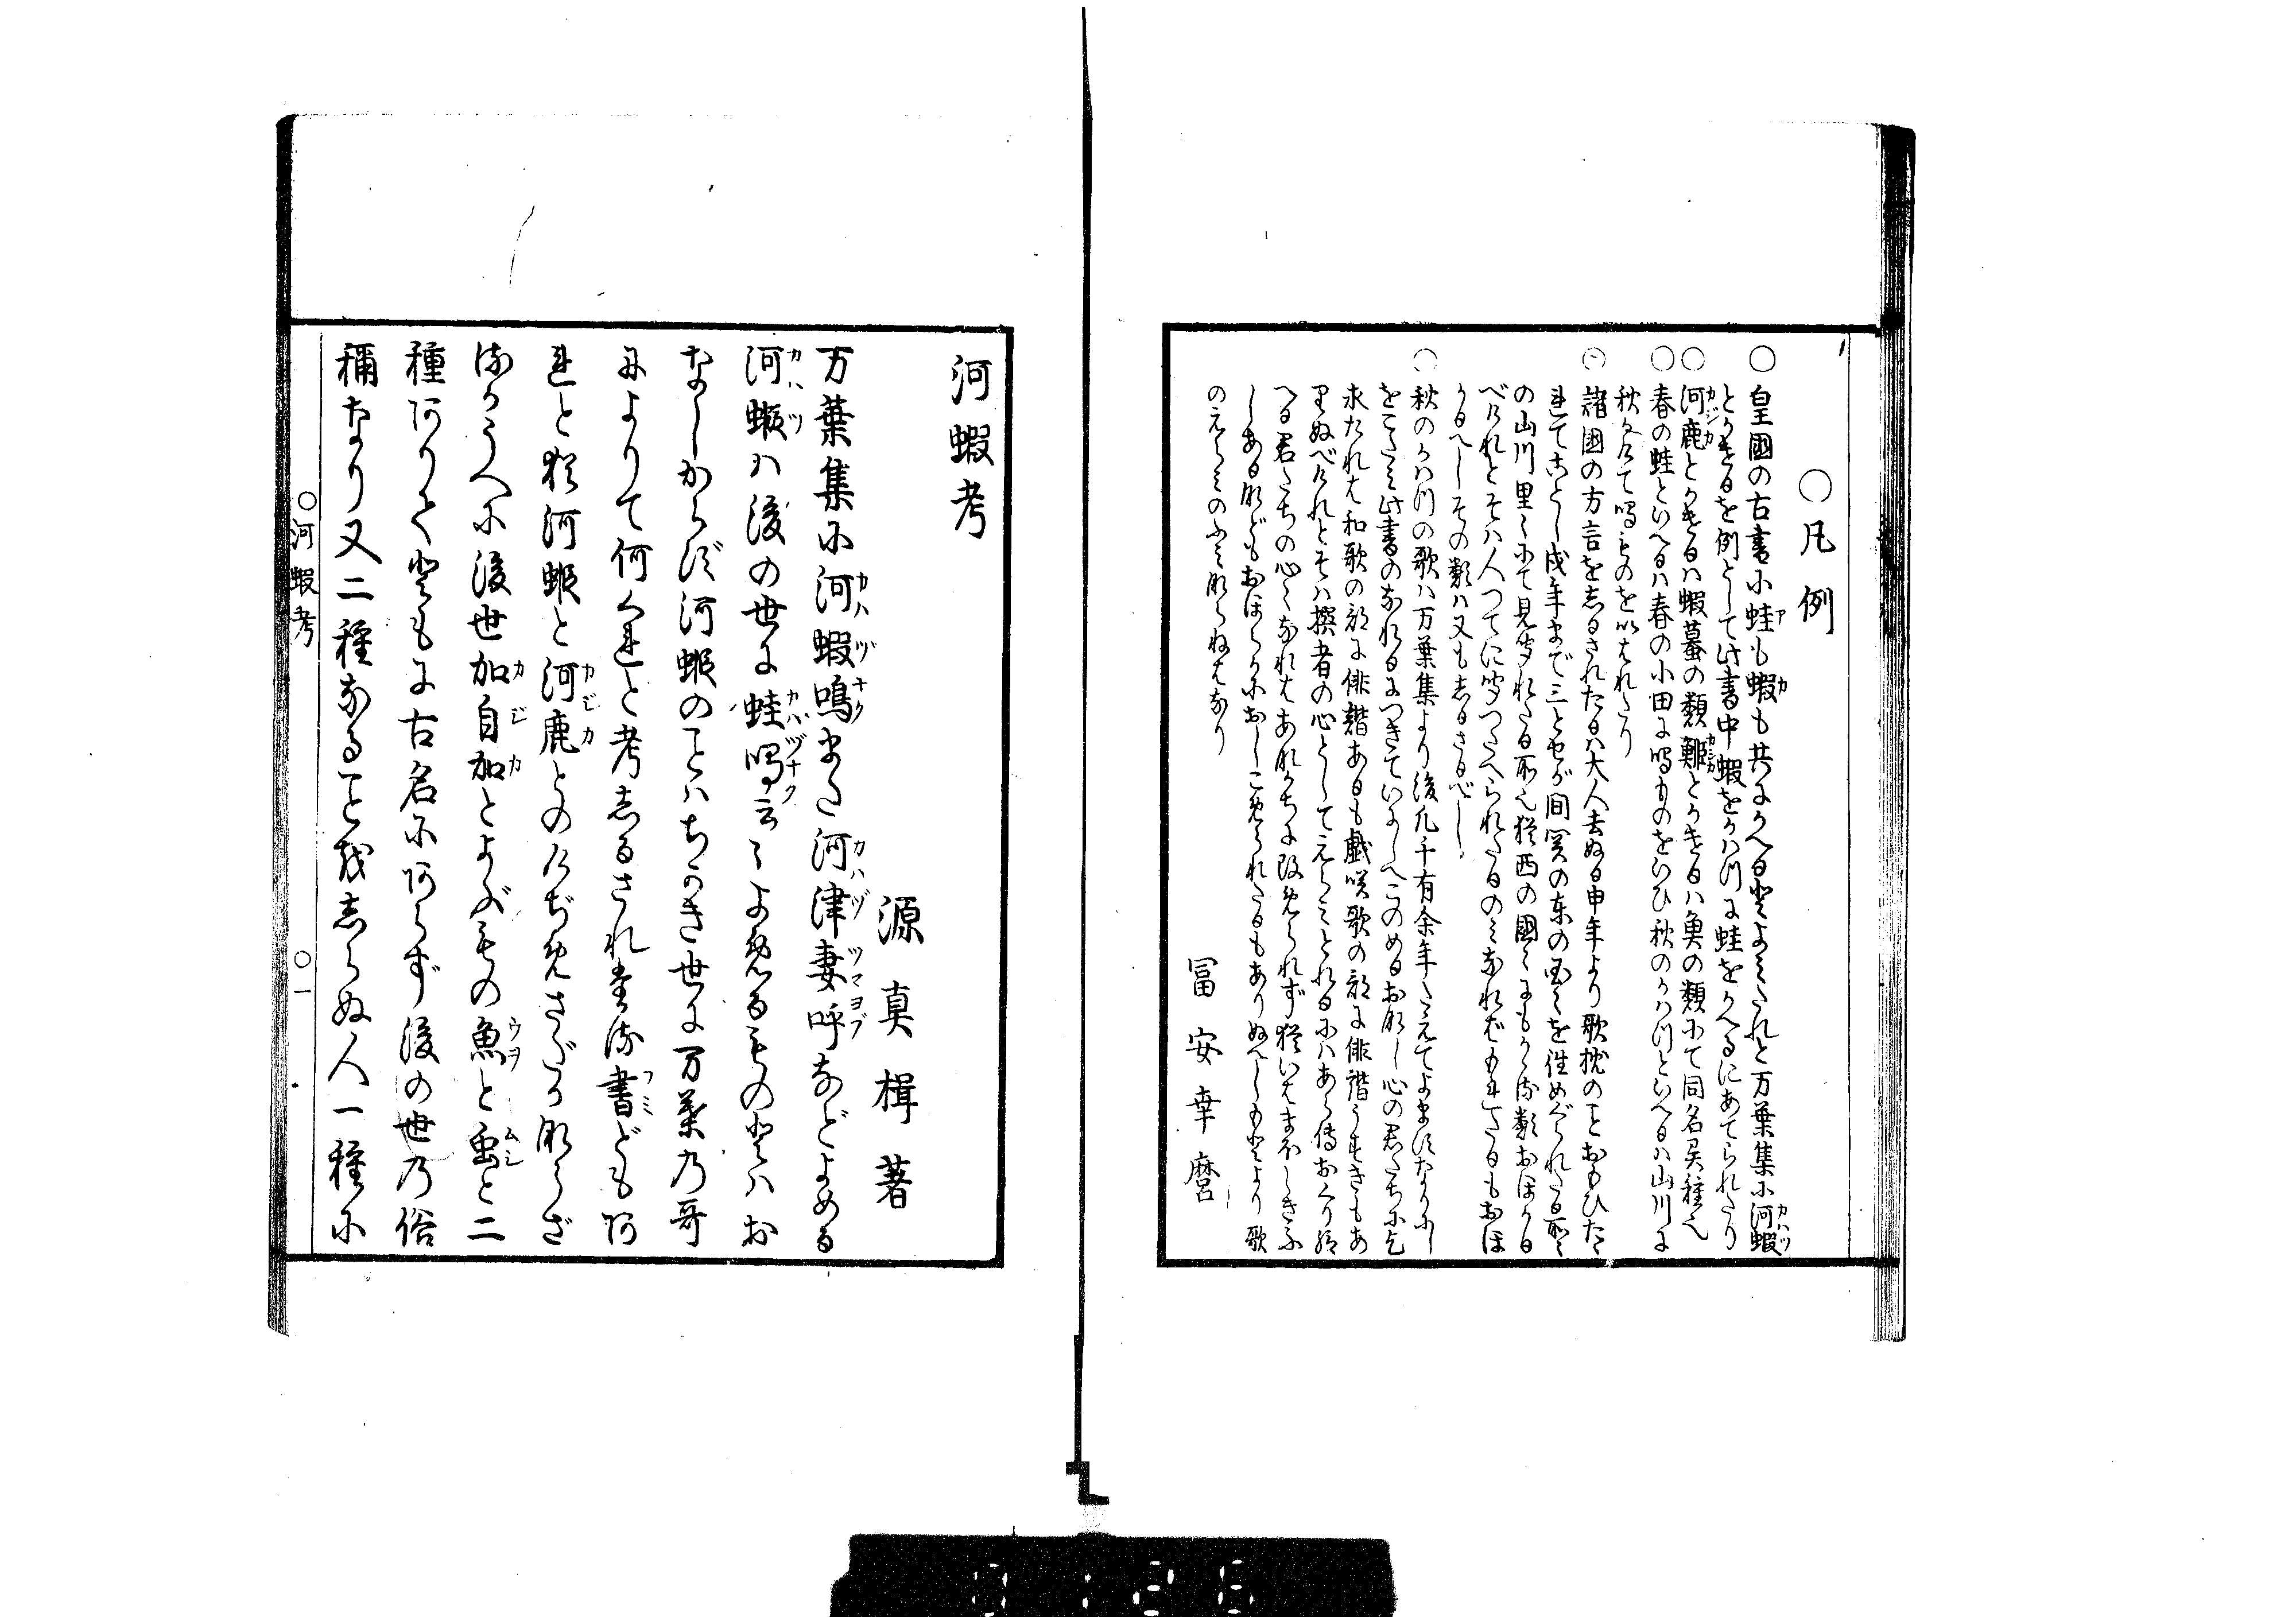 ○凡例
○皇國の古書に蛙も蝦も共にかへるとよみたれと万葉集に河蝦
とかけるを例として此書中蝦をかハづに蛙をかへるにあてられたり
○河鹿とかけるハ蝦蟇の類 とかけるハ魚の類にて同名異種也
○春の蛙といへるハ春の小田に鳴ものをいひ秋のかハづといへるハ山川に
秋かけて鳴ものを以はれたり
○諸國の方言を志るされたるハ大人去ぬる申年より歌枕のことおもひたゝ
れてことし戌年まで三とせが間関の東の国々を往めぐられたる所々
の山川里々にて見聞れたる所也猶西の國々にもかゝる類おほかる
べけれとそハ人つてに聞つたへられたるのミなれバもれたるもおほ
かるへしその類ハ又も志るさるべし
○秋のかハづの歌ハ万葉集より後凡千有余年たえてよまずなりにし
をことに此書のなれるにつきていにしへこのめるおなし心の君たちに乞
求たれは和歌の部に俳諧あるも戯咲歌の部に俳諧うすきもあ
りぬべけれとそハ撰者の心としてえらミとれるにハあらず おくり給
へる君たちの心々なれはあながちに改められず猶いはまほしきふ
しあるなどもおほらかにおしこめられたるもありぬへしもとより歌
のえらミのふミならねはなり
冨安幸麿
河蝦考
源真楫著
万葉集に河蝦鳴また河津妻呼などよめる
河蝦ハ後の世に蛙鳴云々よめるものとハお
なしからず河蝦のことハちかき世に万葉乃哥
によりて何くれと考志るされたる書ども阿
れと猶河蝦と河鹿とのけぢめさだかならざ
るかうへに後世加自加とよぶものゝ魚と虫と二
種阿りてともに古名に阿らず後の世乃俗
稱なり又二種なること越志らぬ人一種に
○河蝦考　○一